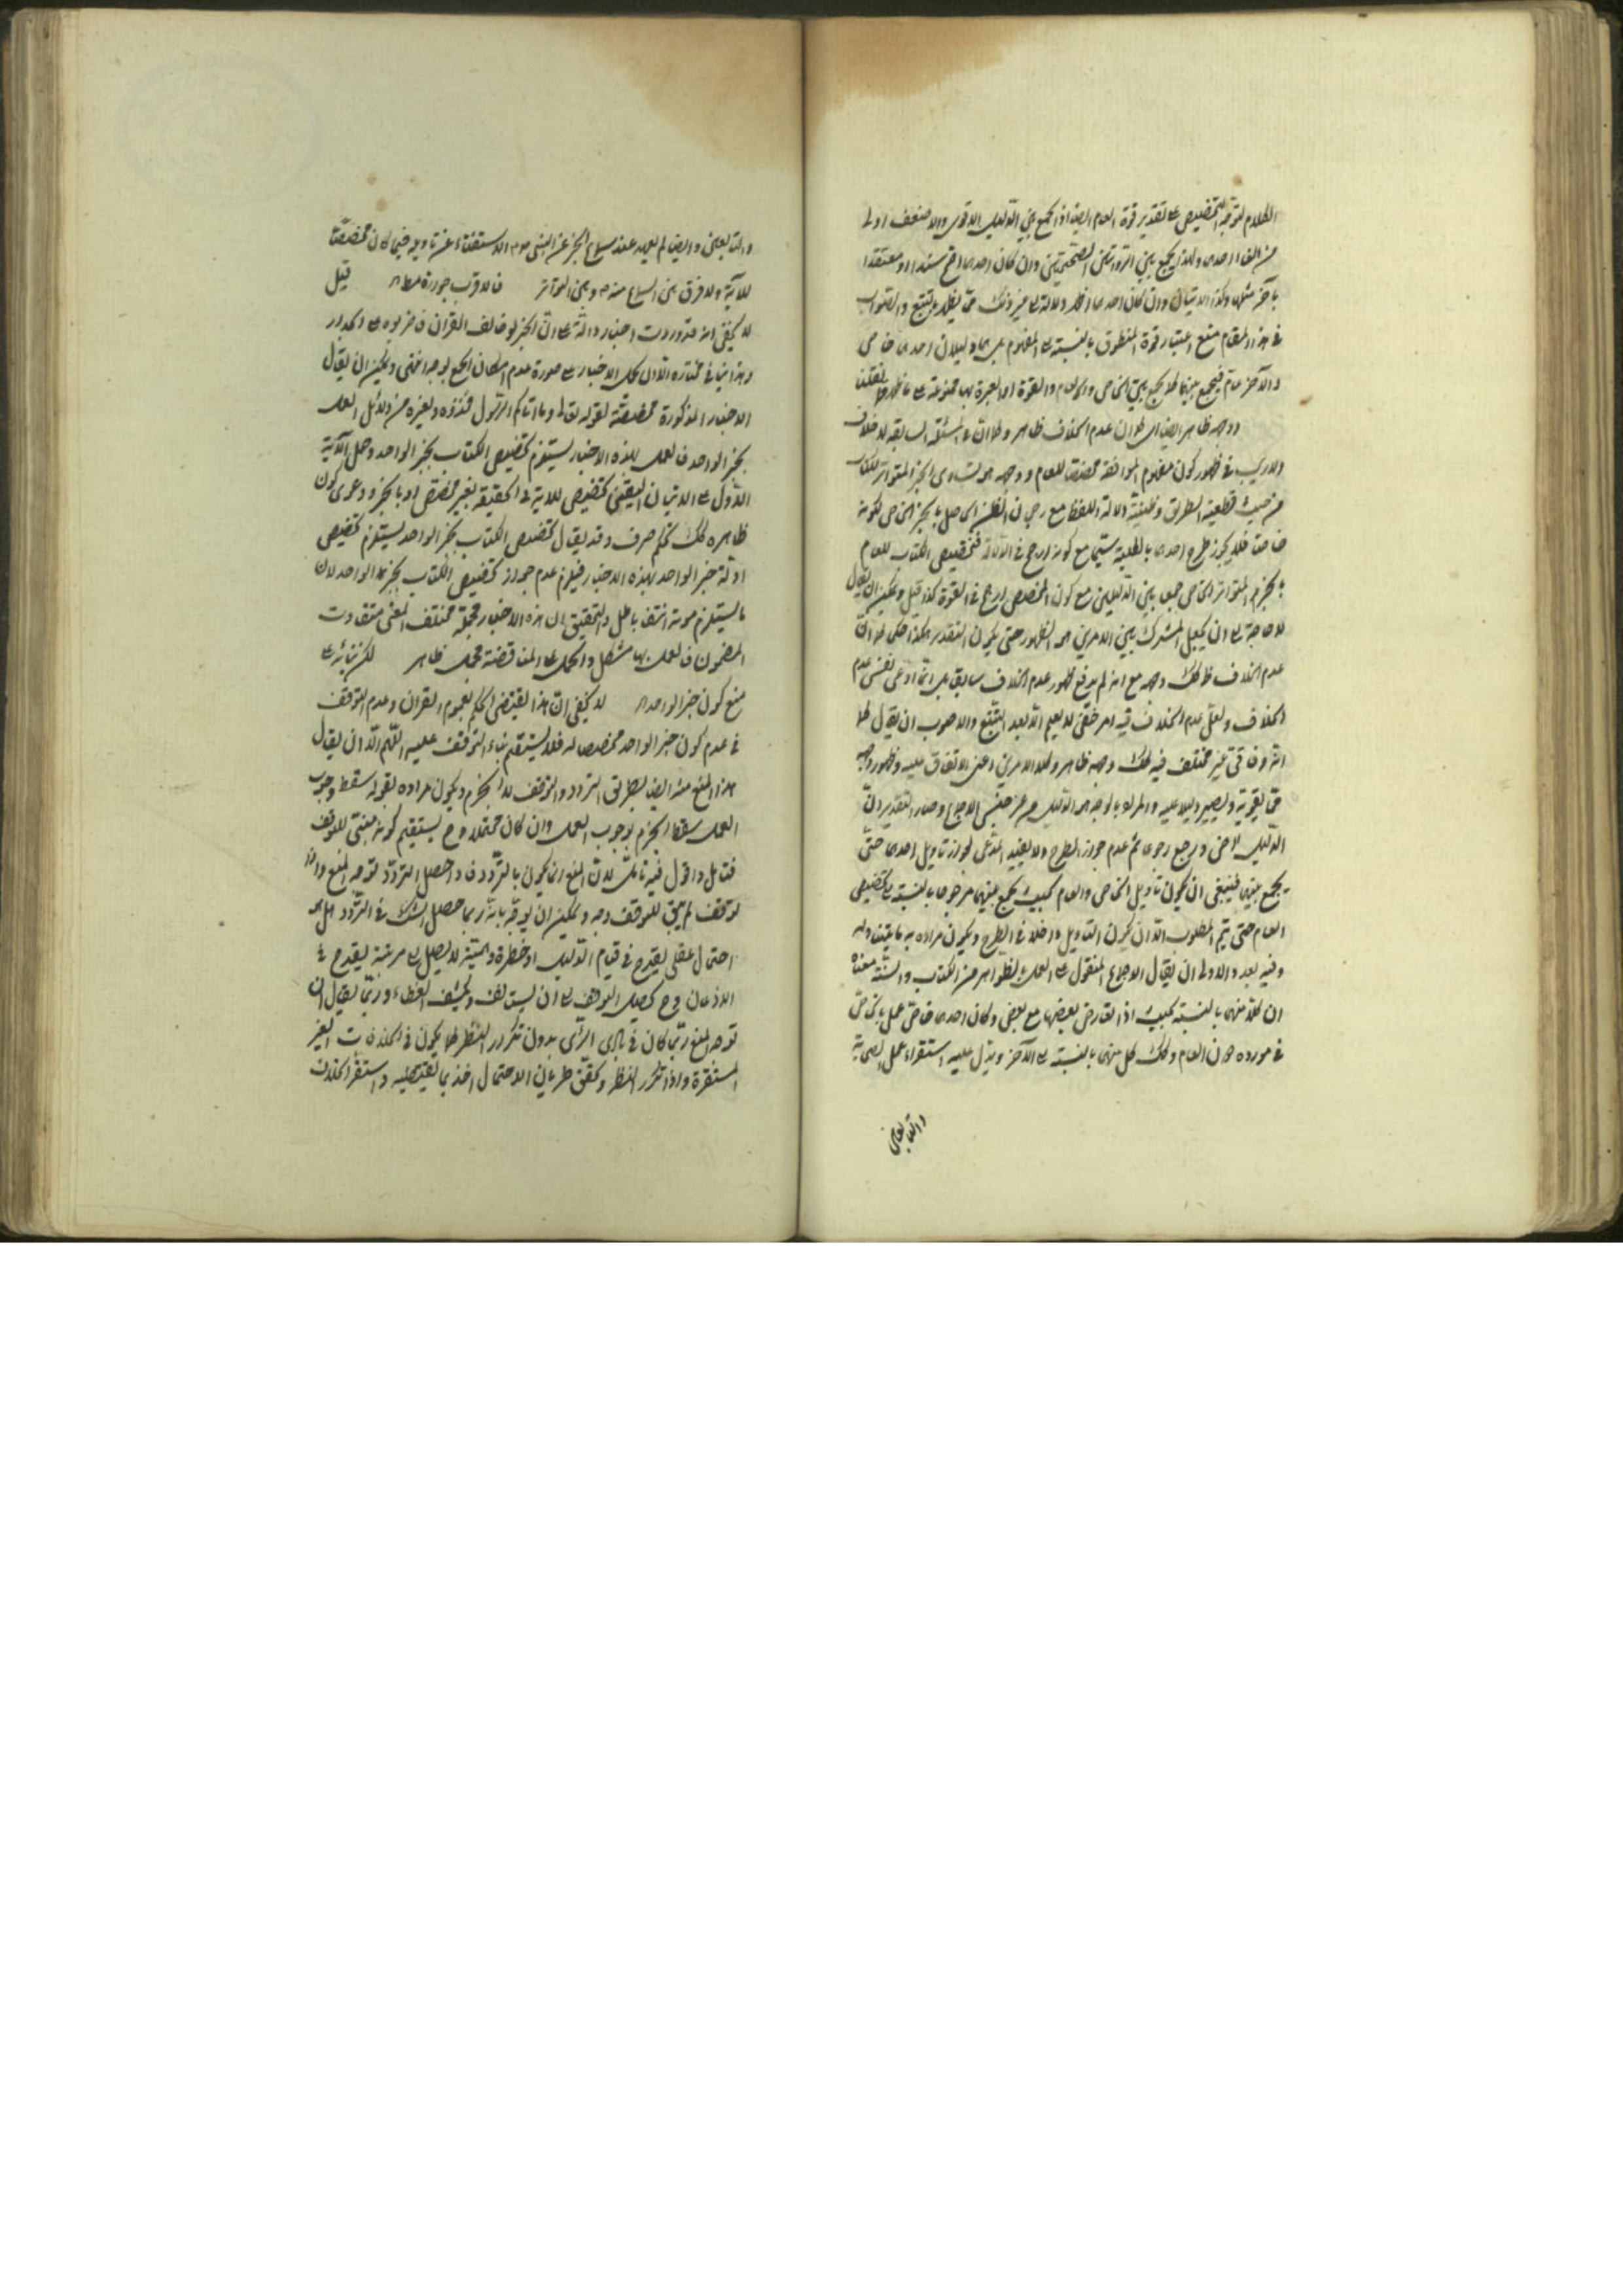 الكلام لتوجّه التخصيص على تقدير قوة العام ايضا اذ الجمع بين الدليل الاقوى والاضعف اولى
من الغاء احدهما ولذا يجمع بين الروايتين الصحيحتين وان كان احدهما اصح سندا او معتقدا
بآخر مثلها وكذا الايتان وان كان احدهما اظهر دلالة الى غير ذلك مما يظهر بالتتبع والصواب
في هذا المقام منع اعتبار قوة المنطوق بالنسبة الى المفهوم بل هما دليلان احدهما خاص
والآخر عام فيجمع بينهما كما يجمع بين الخاص والعام والقوة او العبرة بها ممنوعة على ما ظهر نقلنا
ووجهه ظاهر ايضا اى كما ان عدم الخلاف ظاهر وكما ان في المسئلة السابقة لا خلاف
ولا ريب في ظهور كون مفهوم الموافقة مخصصا للعام ووجهه هو تساوى الخبر المتواتر للكتاب
من حيث قطعية الطريق وظنية دلالة اللفظ مع رجحان الظن الحاصل بالخبر الخاص لكونه
خاصا فلا يجوز طرح احدهما بالكلية سيما مع كونه ارجح في الدلالة فتخصيص الكتاب العام
بالخبر المتواتر الخاص جمعا بين الدليلين مع كون المخصص ارجح في القوة كذا قيل ويمكن ان يقال
لا حاجة الى ان يجعل المشترك بين الامرين هو الظهور حتى يكون التقدير هكذا حكى كما ان
عدم الخلاف ظ كك وجهه مع انه لم يدع ظهور عدم الخلاف سابقا بل انما ادعى نفس عدم
الخلاف ولعل عدم الخلاف فيه امر خفي لا يعلم الا بعد التتبع والاصوب ان يقال كما
انه وفاقي غير مختلف فيه كك وجهه ظاهر وكلا الامرين اعنى الاتفاق عليه وظهور وجهه
مما يقويه ويصير دليلا عليه والمراد بالوجه هو الدليل من غير جنس الاجماع وصار التقدير ان
الدليل الاخص ويرجع رجوعا ثم عدم جواز الطرح ولا يفيد المدعى لجواز تاويل احدهما حتى
يجمع بينهما فينبغى ان يكون تأويل الخاص والعام بحيث يجمع بينهما مرجوحا بالنسبة الى تخصيص
العام حتى يتم المطلوب الا ان يكون التاويل داخلا في الطرح ويكون مراده به ما يتناوله
وفيه بعد والاولى ان يقال الاجماع المنقول على العمل بظواهر من الكتاب والسنة معناه
ان كلا منهما بالنسبة بحيث اذا تعارض بعضها مع بعض وكان احدهما خاصا عمل بالخاص
في مورده دون العام وكك كل منهما بالنسبة الى الآخر ويدل عليه استقراء عمل الصحابة
والتابعين
والتابعين وايضا لم يعهد عند سماع الخبر عن النبى ص م الاستفتاء عن تاويله فيما كان مخصصا
للآية ولا فرق بين السماع منه ص وبين المتواتر فالاقرب جوازه مطلقا قيل
لا يخفى انه قد وردت اخبار دالة على ان الخبر لو خالف القرآن فاضربوه على الجدار
وهذا ينافى مختاره الاول تحمل الاخبار على صورة عدم امكان الجمع بوجه اخفى ويمكن ان يقال
الاخبار المذكورة مخصصة لقوله تعالى وما اتاكم الرسول فخذوه ولغيره من دلائل العمل
بخبر الواحد فالعمل بهذه الاخبار يستلزم تخصيص الكتاب بخبر الواحد وحمل الآية
الاول على الاتيان اليقينى تخصيص للاية في الحقيقة بغير مخصص او بالخبر ودعوى كون
ظاهره كك تحكم صرف وقد يقال تخصيص الكتاب بخبر الواحد يستلزم تخصيص
ادلة خبر الواحد بهذه الاخبار فيلزم عدم جواز تخصيص الكتاب بخبر الواحد لان
ما يستلزم صدقه انتفاءه باطل والتحقيق ان هذه الاخبار مجملة مختلف المعنى متفاوت
المضمون فالعمل بها مشكل والحكم على المناقضة محل ظاهر لكن بنائه على
منع كون خبر الواحد اه لا يخفى ان هذا يقتضى الحكم بعموم القران وعدم التوقف
في عدم كون خبر الواحد مخصصا له فلا يستقيم بناء التوقف عليه اللهم الا ان يقال
هذا المنع منه ايضا بطريق التردد والتوقف لا الجزم ويكون مراده بقوله سقط وجوب
العمل سقط الجزم بوجوب العمل وان كان محتملا وح يستقيم كونه مبنى للوقف
فتامل واقول فيه تامل لان المنع انما يكون بالتردد فاذا حصل التردد توجه المنع واذا
توقف لم يبق للتوقف وجه ويمكن ان يوجه بانه ربما حصل الشك في التردد هل هو
احتمال عقلى يقدح في قيام الدليل او خطرة والبتة لا يصل الى مرتبة يقدح في
الاذعان وح يحصل التوقف الى ان يستانف ويكشف الغطاء وربما يقال ان
توجه المنع ربما كان في بادى الراى بدون تكرار النظر كما يكون في الخلافيات الغير
المستقرة واذا تكرر النظر وتحقق طريان الاحتمال اخذ بما يقتضيه واستقر الخلاف